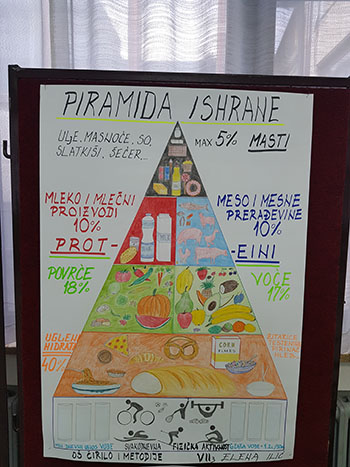 PIRAMIDA ISHRANE
ULJE, MASNOĆE, SO,
SLATKIŠI, ŠEĆER...
MAX 5% MASTI
MLEKO I MLEČNI
PROIZVODI
10%
PROT-
MESO I MESNE
PRERAĐEVINE
10%
-EINI
POVRĆE
18%
VOĆE
17%
UGLJENI
HIDRATI
40%
CORN
FLAKES
SVAKODNEVNA FIZIČKA AKTIVNOST
OŠ ĆIRILO I METODIJE VII3 JELENA ILIĆ